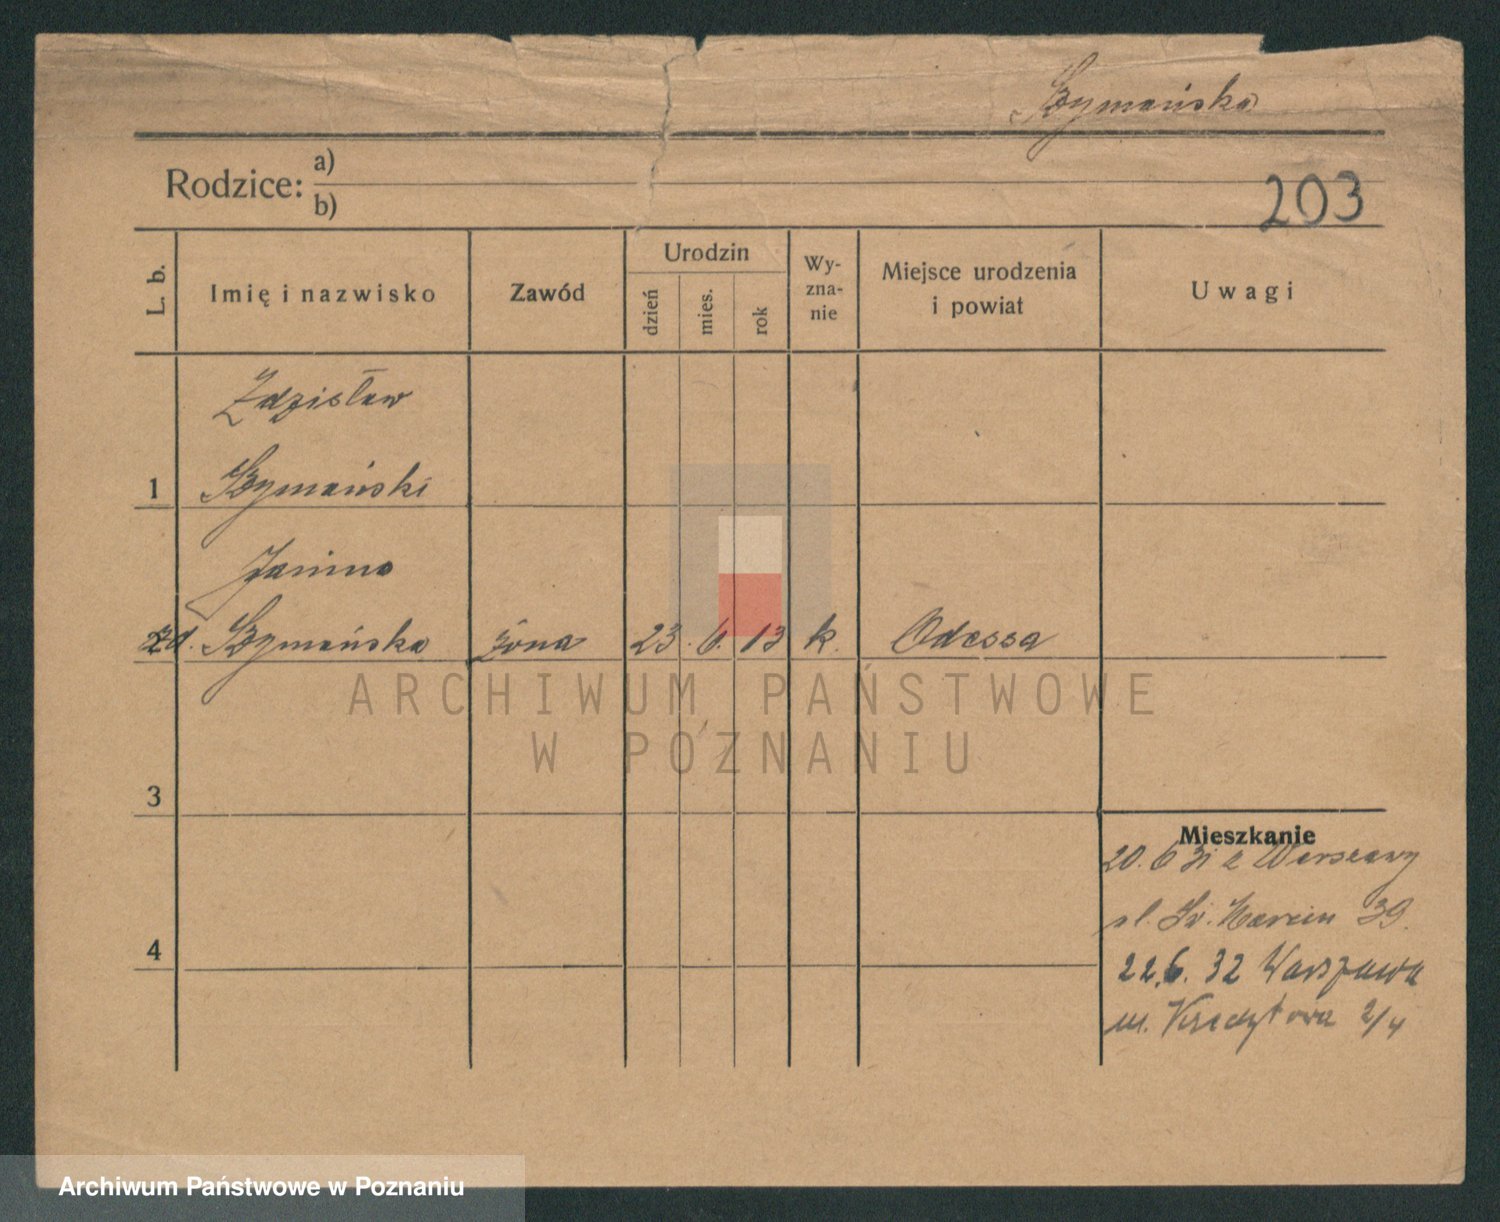 Szymańska
Rodzice: a)
b)
203
L. b.
Imię i nazwisko
Zawód
Urodzin
dzień
mies.
rok
Wy-
zna-
nie
Miejsce urodzenia
i powiat
Uwagi
Zdzisław
1 Szymański
Janina
Szymańska żona 23. 6. 13 k. Odessa
ARCHIWUM PAŃSTWOWE
W POZNANIU
3
Mieszkanie
20. 6 31 z Warszawy
ul. Św. Marcin 39.
4
22. 6. 32 Warszawa
ul. Kredytowa 2/4
Archiwum Państwowe w Poznaniu